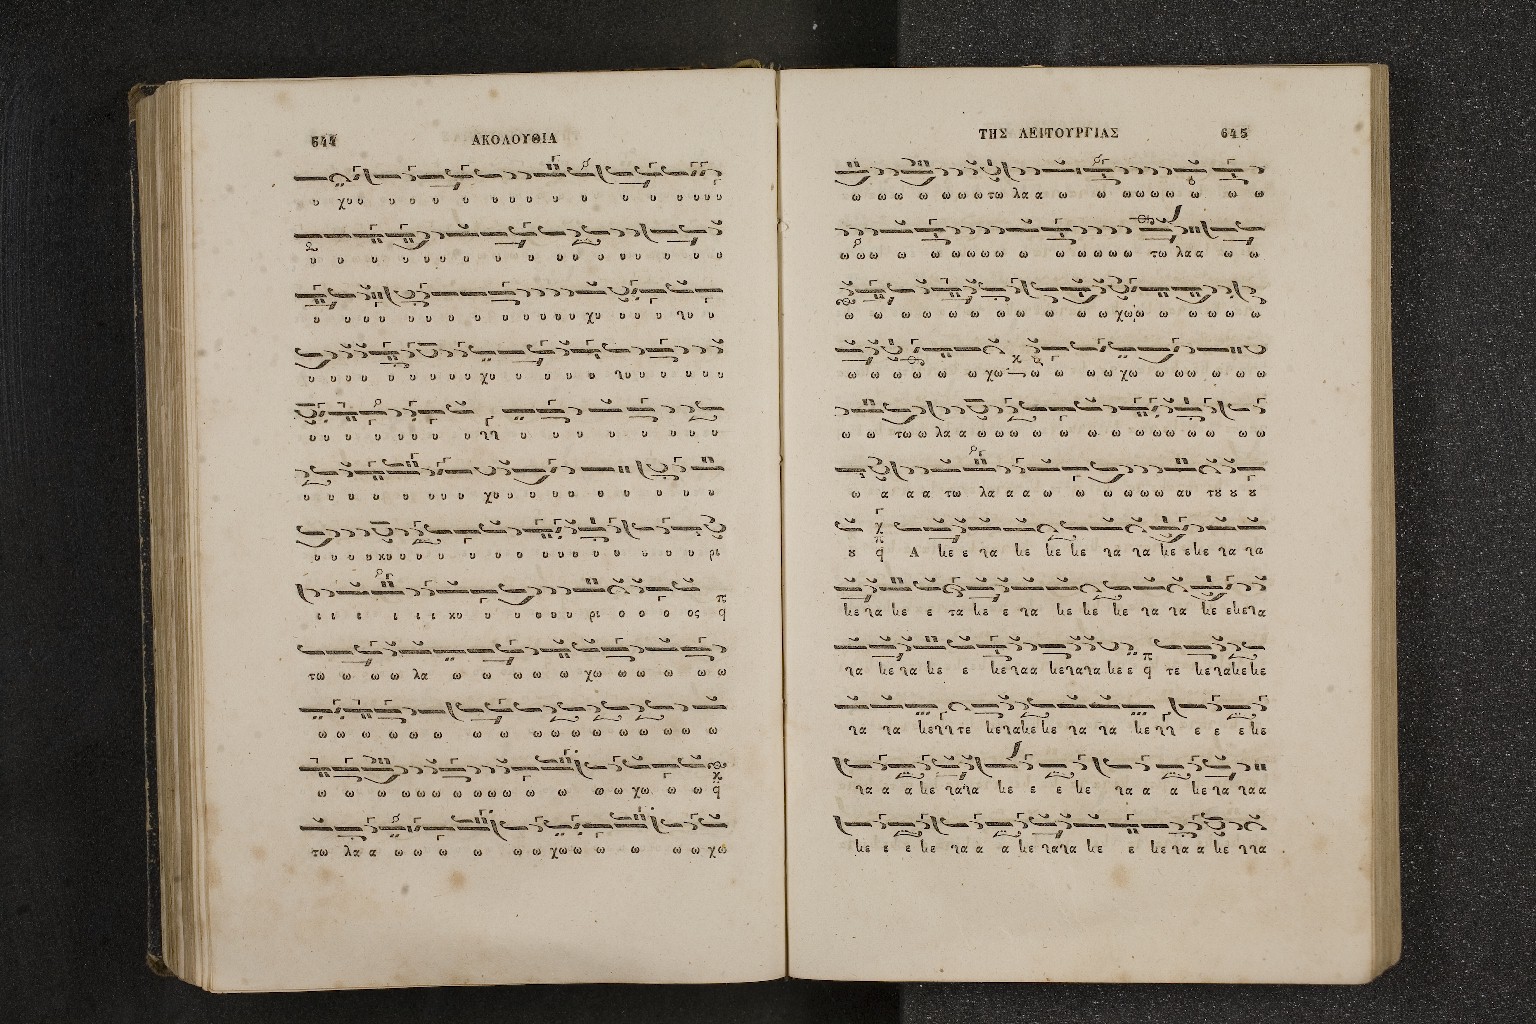 644 ΑΚΟΛΟΥΘΙΑ
υ χυυ υ υ υ υ υ υυυ υ υ υ υ υυυυ
υ υ υ υ υ υ υ υυ υ υυυ υ υ υ
υ υυυυ υυ υ υ υ υυυυυ χυ υυυ υ ϟυ υ
υ υυυ υυυυυυ χυ υ υ υ υ υ ϟυ υυυυυ
υυυ υ υυυ υ υϟϟ υ υ υ υ υ υ υ υ
υ υυυ υ υυυ χυυυυυυ υ υ υ υ υ
υυυυκυυυυ υ υ υ υυυυυυυ υ υ υ υ ρι
ι ι ι ι ι ι κυ υ υυυυ ρι ο ο ο ος
τω ω ω ω λα ω ω ω ω ω χω ωω ω ω ω
ωω ω ω ω ω ω ω ωω ω ω ω ω ω ω ω
ω ω ω ωωωω ω ωωω ω ω ωω χω ω ω
τω λαα ωω ω ω ωω χωω ω ω ωω χω
ΤΗΣ ΛΕΙΤΟΥΡΓΙΑΣ 645
ω ω ω ω ωωωτω λαα ω ω ωωωω ω ω ω
ωωω ω ωωωωω ω ωωωωω τω λαα ω ω
ω ω ω ω ω ω ω ω ω ω χωω ω ωωω ω
ω ω ω ω ω ω χω ω ω ω ω χω ω ωω ω ω ω
ω ω τωω λαα ωωω ω ω ω ω ωωωωω ω ω
ω α αα τω λαααω ω ωωωω αυ τȣ ȣ ȣ
ȣ Α κε ε ϟα κε κε κε ϟα ϟα κε εκε ϟα ϟα
κε ϟα κε ε τα κε ε ϟα κε κε κε ϟα ϟα κε εκεϟα
ϟα κε ϟα κε ε κε ϟαα κεϟαϟα κε ε τε κε ϟακεκε
ϟα ϟα κεϟϟτε κεϟακεκε ϟα ϟα κε ϟϟ ε ε εκε
ϟα α ακε ϟαϟα κε ε ε κε ϟα α α κε ϟα ϟαα
κε ε ε κε ϟα α α κε ϟαϟα κε ε κε ϟα α κε ϟϟα